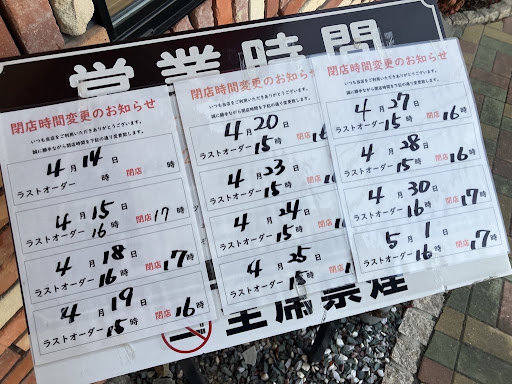 営業時間
閉店時間変更のお知らせ
いつも当店をご利用いただきありがとうございます。
誠に勝手ながら閉店時間を下記の通り変更致します。
4月14日
ラストオーダー 時 閉店 時
4月15日
ラストオーダー 16時 閉店 17時
4月18日
ラストオーダー 16時 閉店 17時
4月19日
ラストオーダー 15時 閉店 16時
閉店時間変更のお知らせ
いつも当店をご利用いただきありがとうございます。
誠に勝手ながら閉店時間を下記の通り変更致します。
4月20日
ラストオーダー 15時
4月23日
ラストオーダー 15時
4月24日
ラストオーダー 15時
4月25日
ラストオーダー 15時 閉店
閉店時間変更のお知らせ
いつも当店をご利用いただきありがとうございます。
誠に勝手ながら閉店時間を下記の通り変更致します。
4月27日
ラストオーダー 15時 閉店 16時
4月28日
ラストオーダー 15時 閉店 16時
4月30日
ラストオーダー 16時 閉店 17時
5月1日
ラストオーダー 16時 閉店 17時
全席禁煙